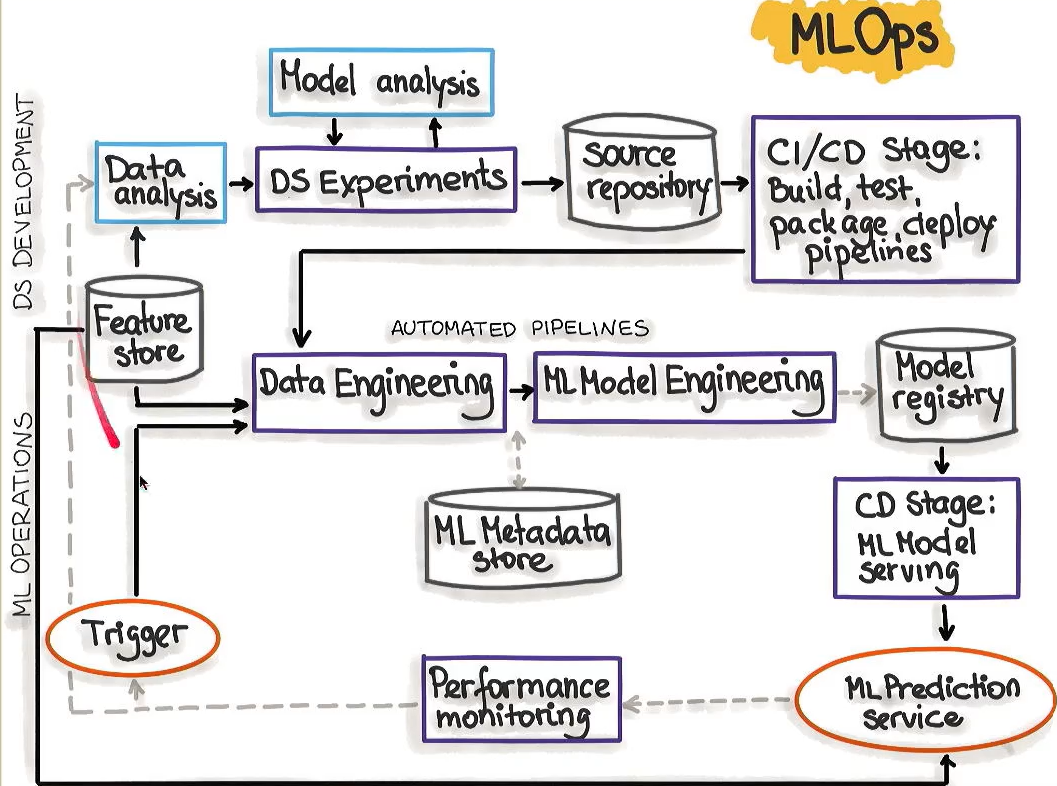 MLOps
DS DEVELOPMENT
Model analysis
Data
analysis
DS Experiments
source
repository
CI/CD Stage:
Build, test,
package, deploy
pipelines
Feature
store
AUTOMATED PIPELINES
Data Engineering
ML Model Engineering
Model
registry
ML OPERATIONS
ML Metadata
store
CD Stage:
ML Model
serving
Trigger
Performance
monitoring
ML Prediction
service